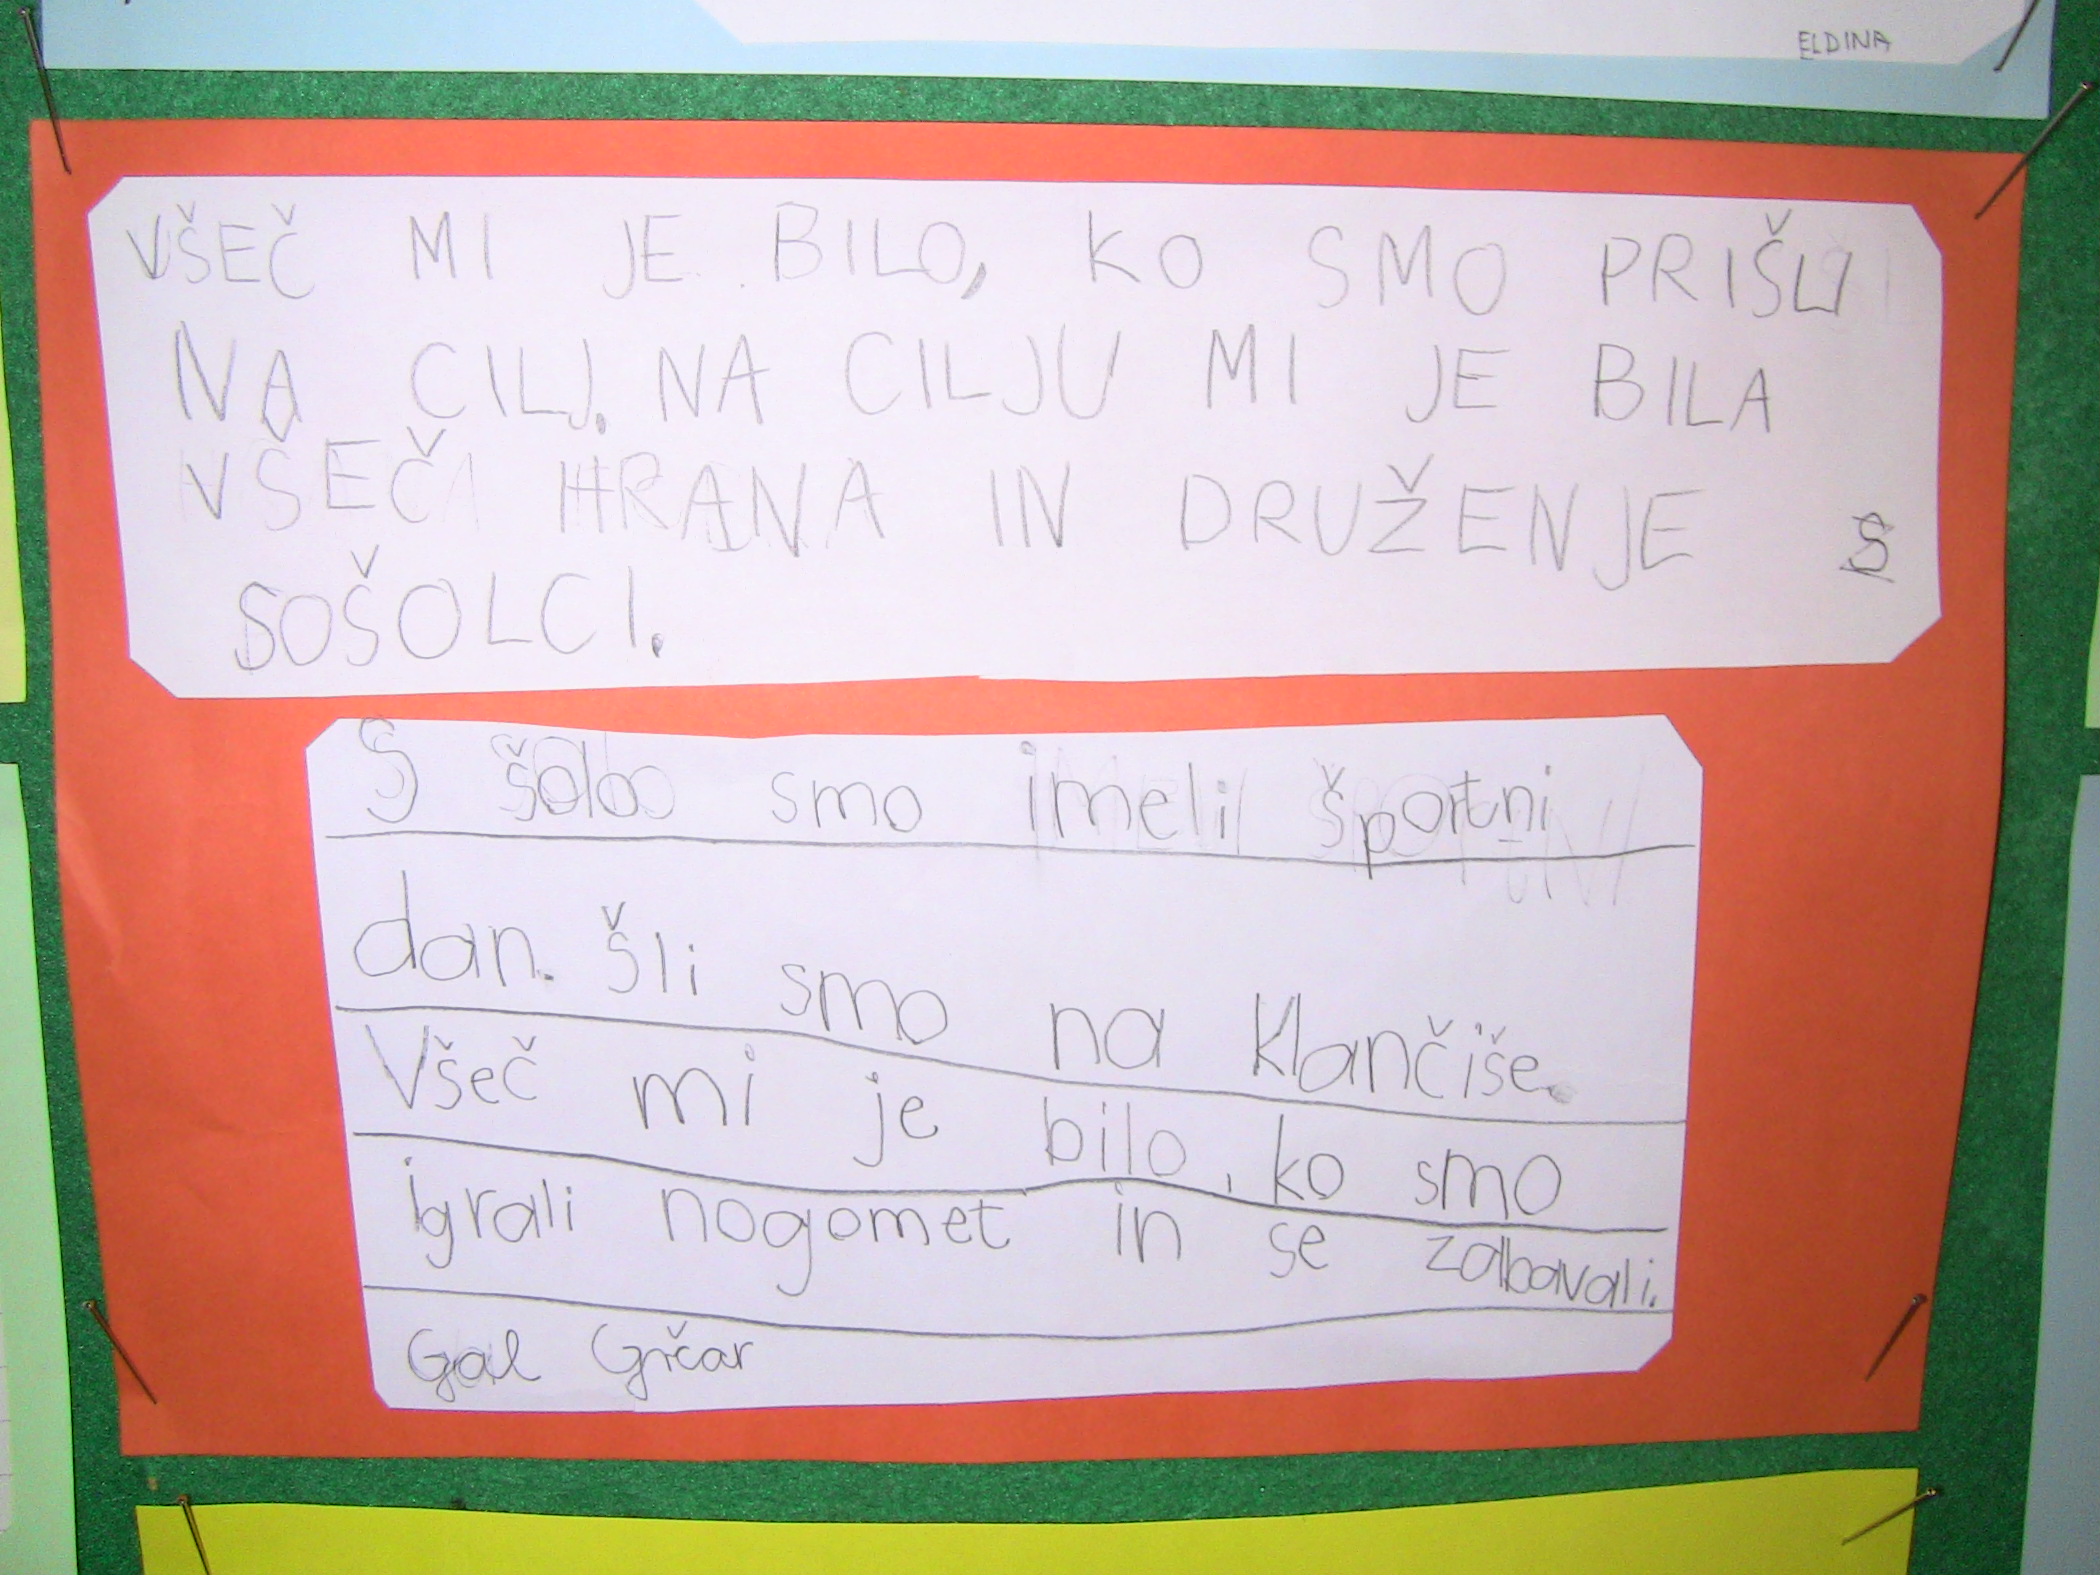 ELDINA
VŠEČ MI JE BILO, KO SMO PRIŠLI
NA CILJ. NA CILJU MI JE BILA
VŠEČ HRANA IN DRUŽENJE S
SOŠOLCI.
S šolo smo imeli športni
dan. Šli smo na Klančiše.
Všeč mi je bilo, ko smo
igrali nogomet in se zabavali.
Gal Grčar